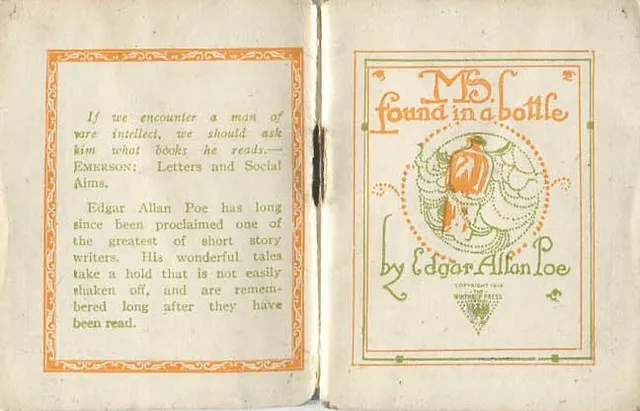 If we encounter a man of
rare intellect, we should ask
him what books he reads.—
EMERSON: Letters and Social
Aims.
Edgar Allan Poe has long
since been proclaimed one of
the greatest of short story
writers. His wonderful tales
take a hold that is not easily
shaken off, and are remem-
bered long after they have
been read.
MS.
found in a bottle
by Edgar Allan Poe
COPYRIGHT
THE
WINTHROP PRESS